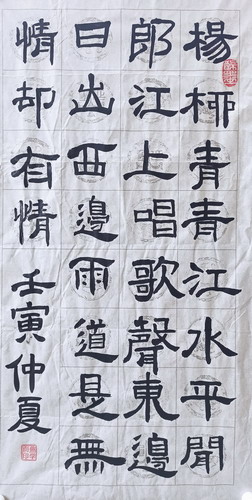 楊栁青青江水平聞
郎江上唱歌聲東邊
日出西邊雨道是無
情却有情
壬寅仲夏